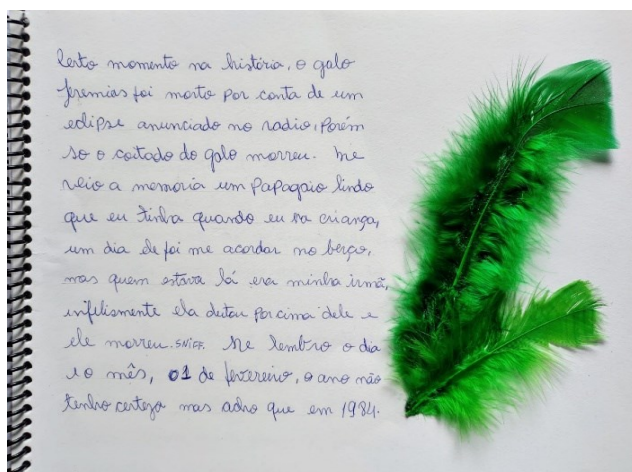 Certo momento na história, o galo
Jeremias foi morto por conta de um
eclipse anunciado no radio, porém
so o coitado do galo morreu. Me
veio a memoria um papagaio lindo
que eu tinha quando eu era criança,
um dia ele foi me acordar no berço,
mas quem estava lá era minha irmã,
infelismente ela deitou por cima dele e
ele morreu. SNIFF. Me lembro o dia
e o mês, 01 de fevereiro, o ano não
tenho certeza mas acho que em 1984.